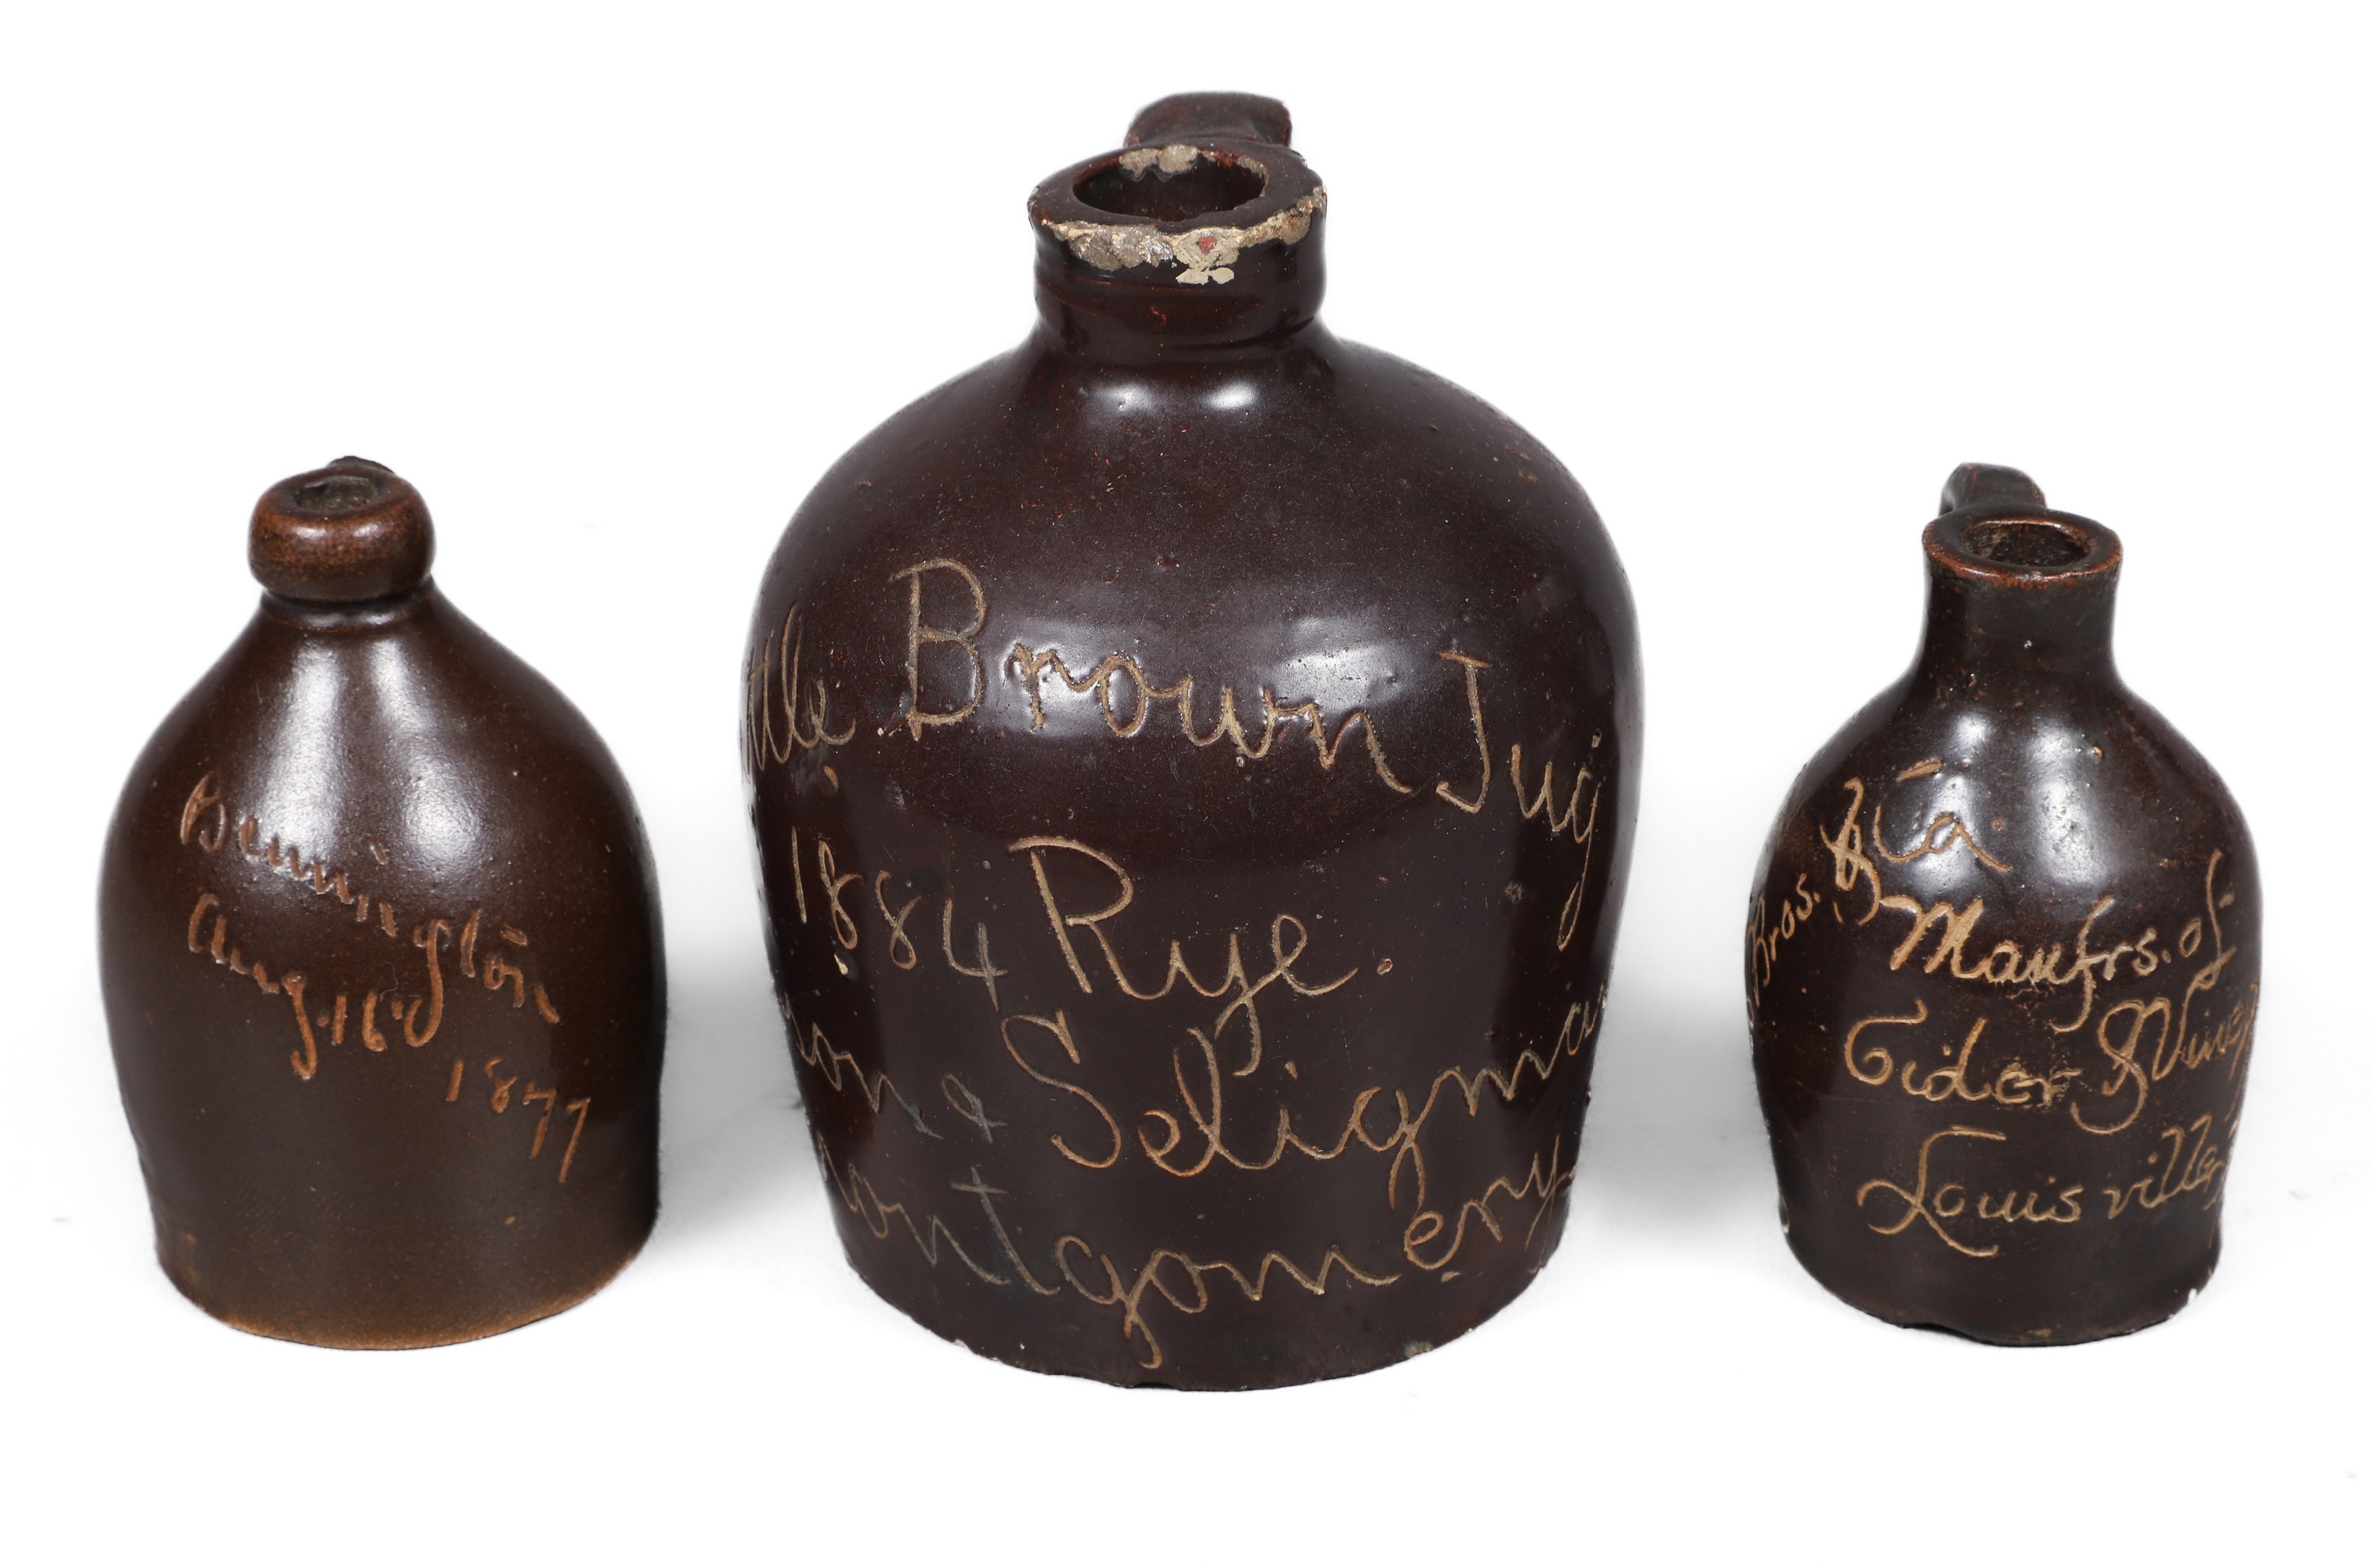 Bennington
Aug. 16th
1877
ttle Brown Jug
1884 Rye.
& Seligma
ontgomery
Bros. &
Manfrs. of
Cider & Vineg
Louisville